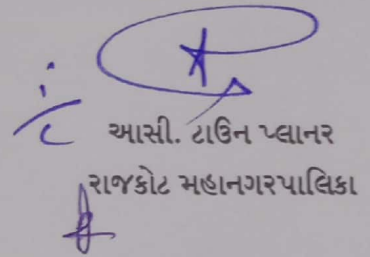 i/c આસી. ટાઉન પ્લાનર
રાજકોટ મહાનગરપાલિકા